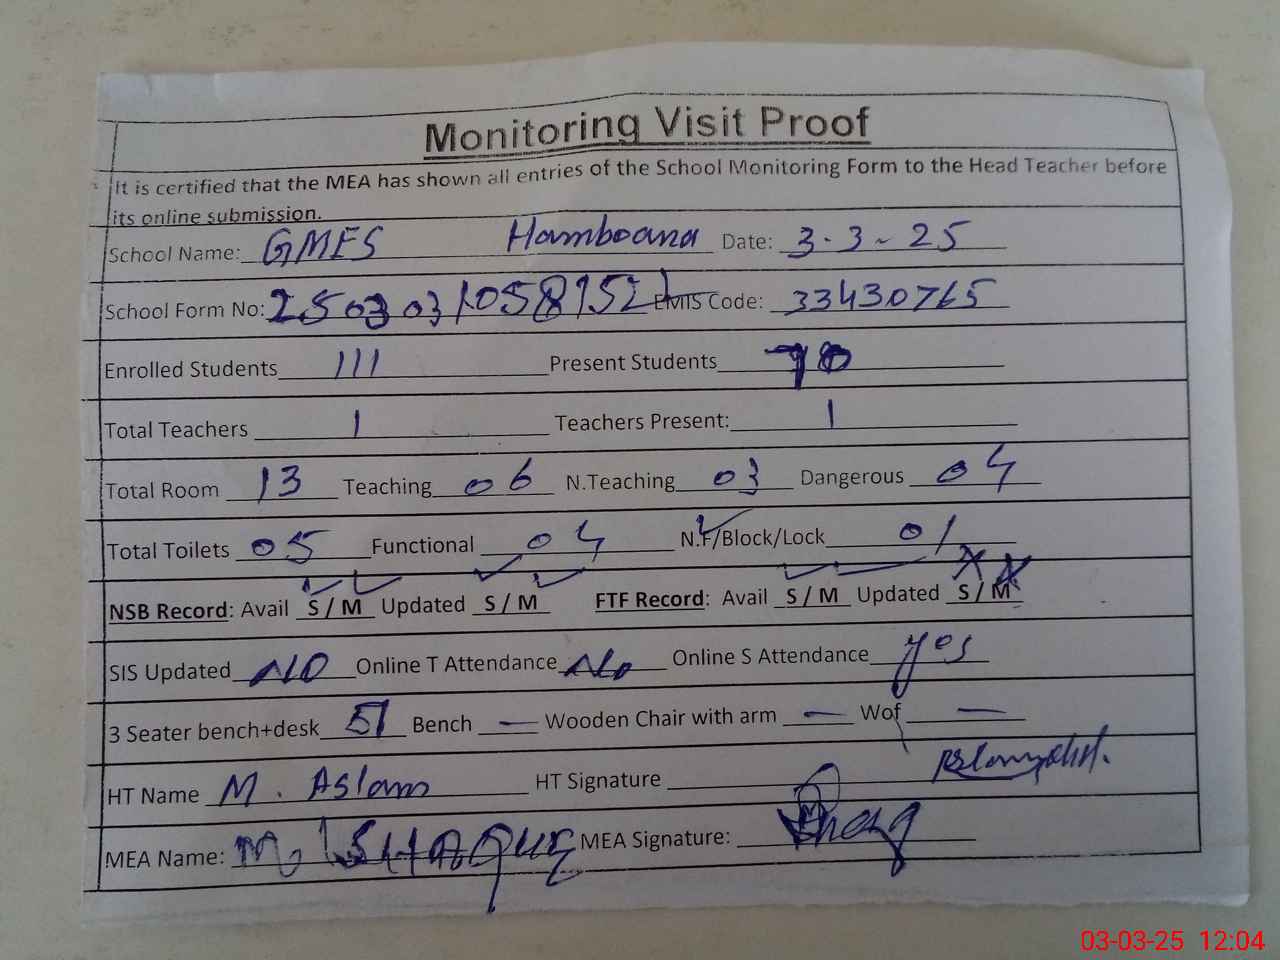 Monitoring Visit Proof
It is certified that the MEA has shown all entries of the School Monitoring Form to the Head Teacher before
its online submission.
School Name: GMES Hamboana Date: 3-3-25
School Form No: 250303 EMIS Code: 33430765
Enrolled Students 111 Present Students
Total Teachers 1 Teachers Present: 1
Total Room 13 Teaching 06 N.Teaching 03 Dangerous 04
Total Toilets 05 Functional 04 N.F/Block/Lock 01
NSB Record: Avail S / M Updated S / M FTF Record: Avail S / M Updated S / M
SIS Updated NO Online T Attendance No Online S Attendance yes
3 Seater bench+desk 51 Bench — Wooden Chair with arm — Wof —
HT Name M. Aslam HT Signature
MEA Name: M. ISHAQUE MEA Signature:
03-03-25 12:04